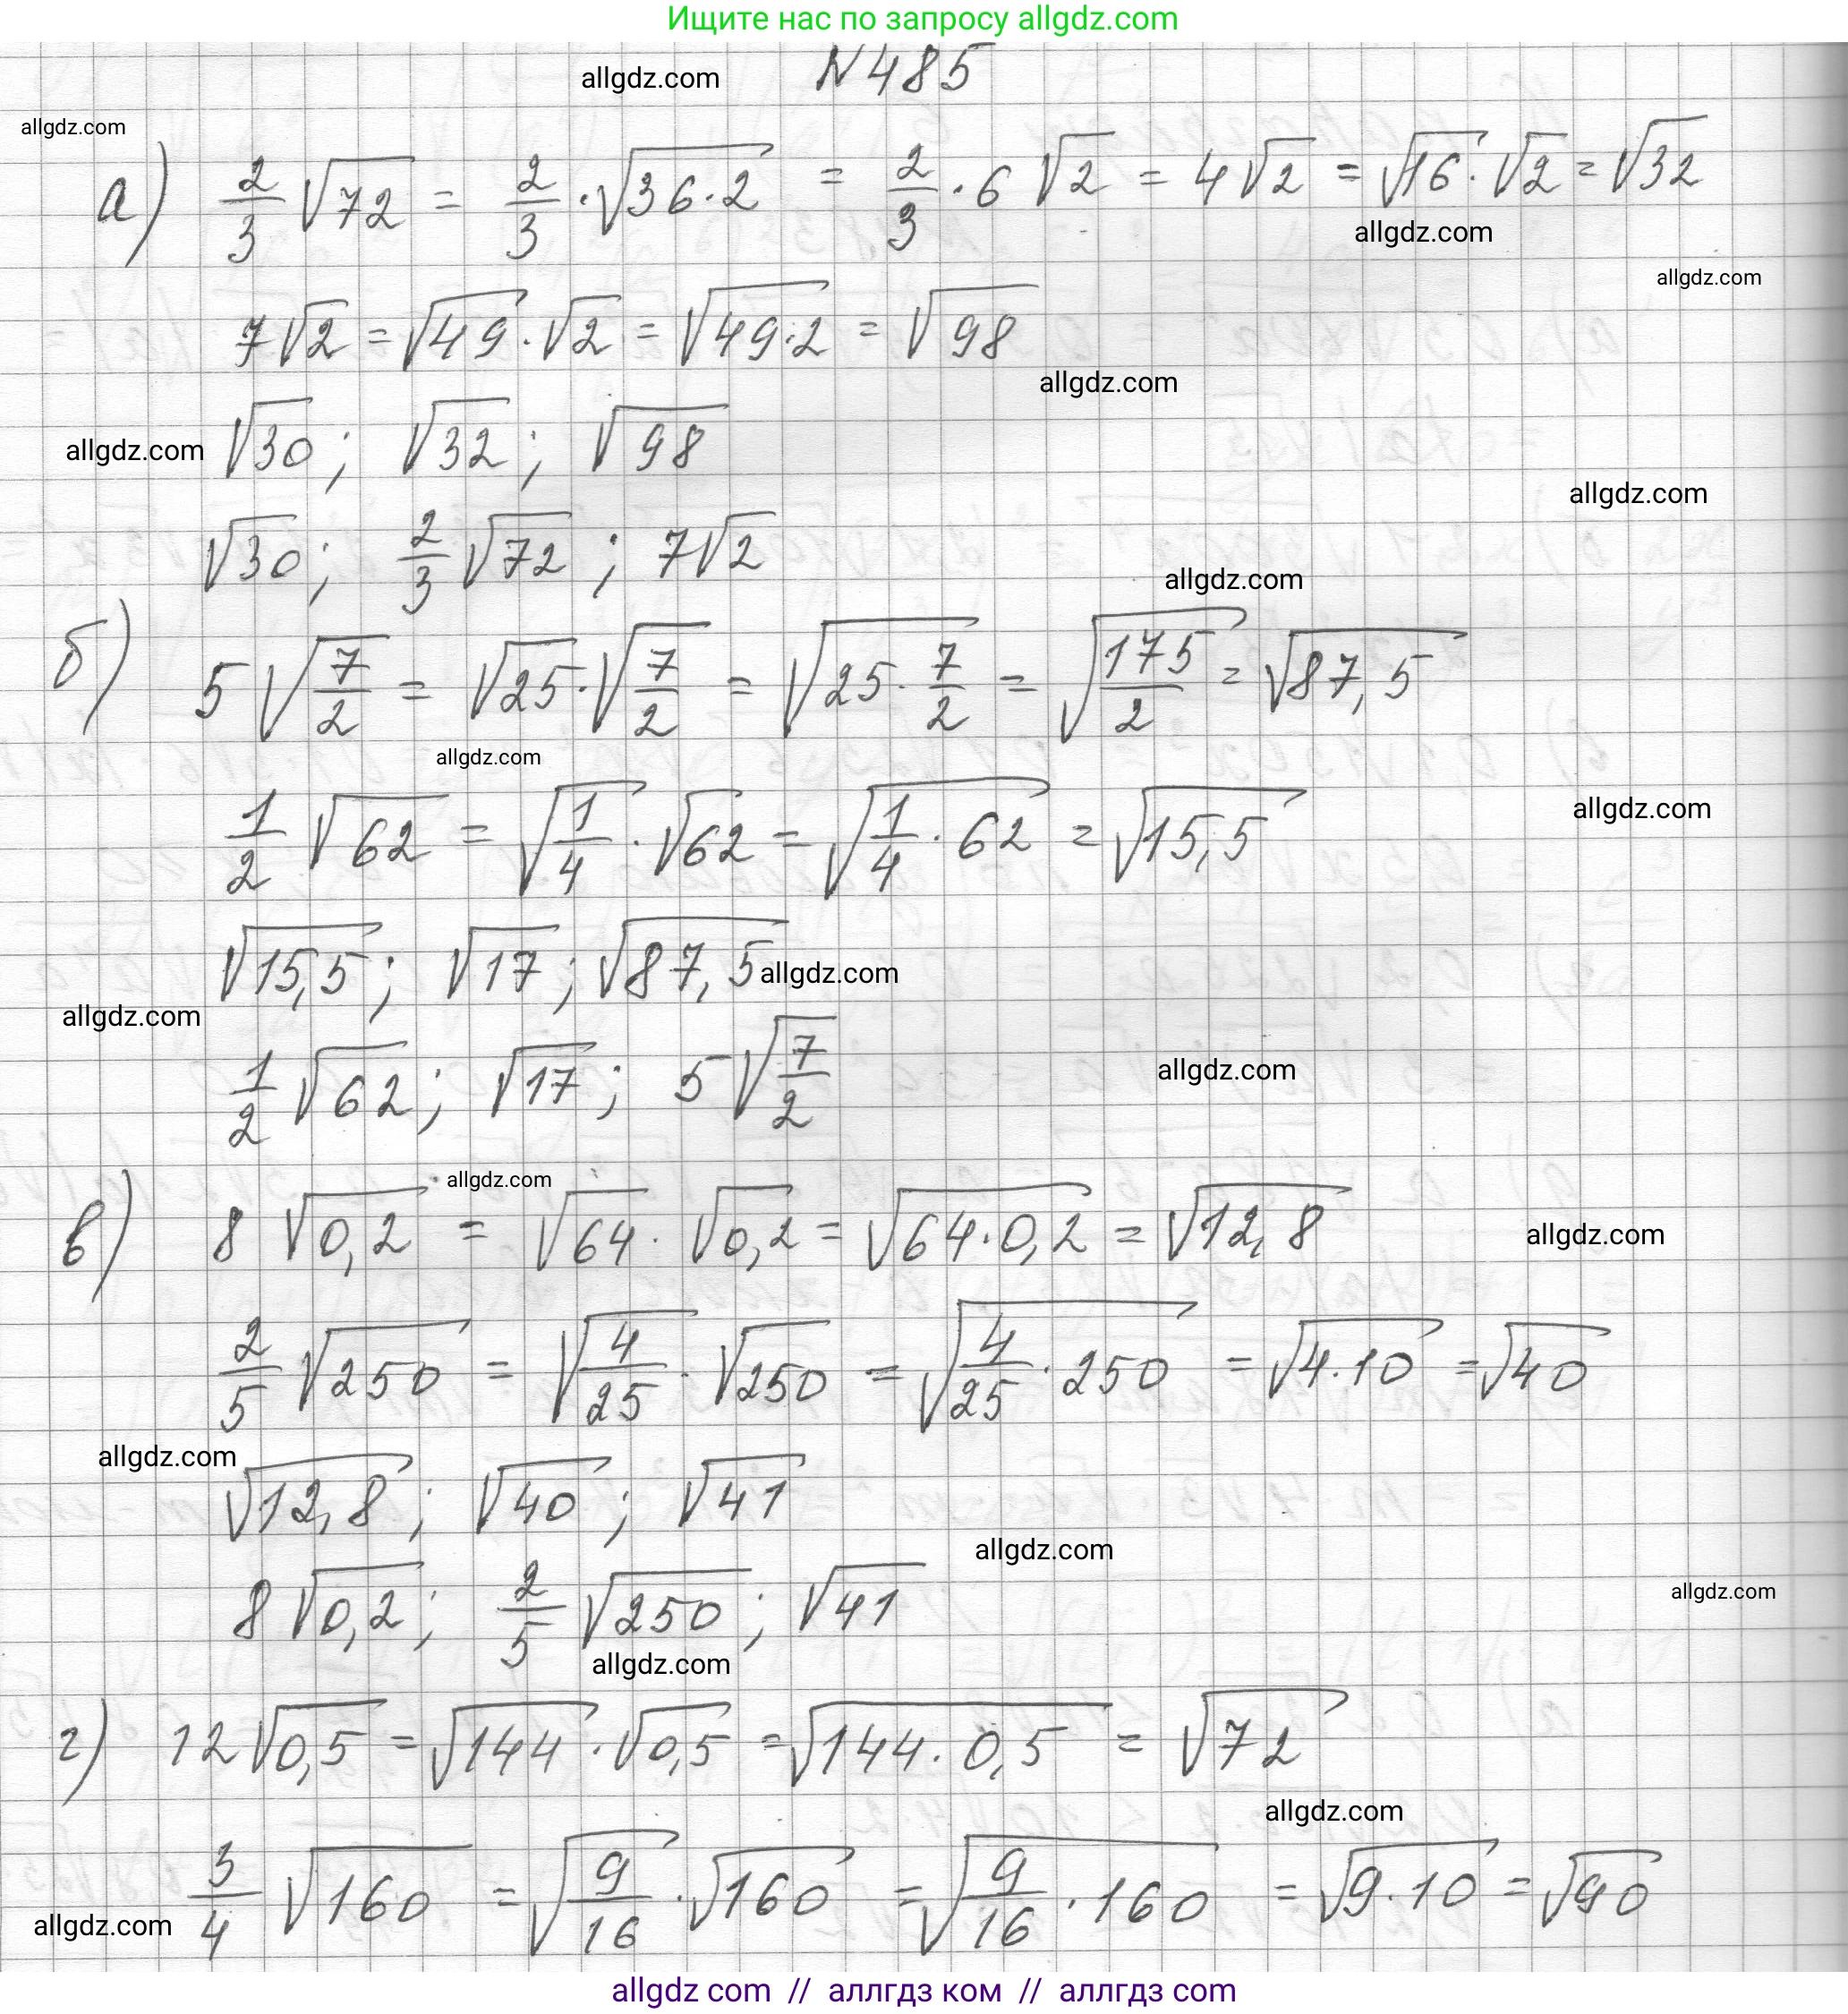 Ищите нас по запросу allgdz.com
allgdz.com N485
allgdz.com
а) 2/3 √72 = 2/3 · √36·2 = 2/3 · 6 √2 = 4√2 = √16 · √2 = √32
allgdz.com
allgdz.com
7√2 = √49 · √2 = √49·2 = √98
allgdz.com
allgdz.com √30; √32; √98
allgdz.com
√30; 2/3 √72; 7√2
allgdz.com
б) 5√7/2 = √25 · √7/2 = √25 · 7/2 = √175/2 = √87,5
allgdz.com
allgdz.com
1/2 √62 = √1/4 · √62 = √1/4 · 62 = √15,5
√15,5; √17; √87,5 allgdz.com
allgdz.com
1/2 √62; √17; 5√7/2
allgdz.com
allgdz.com
в) 8 √0,2 = √64 · √0,2 = √64·0,2 = √12,8
allgdz.com
2/5 √250 = √4/25 · √250 = √4/25 · 250 = √4·10 = √40
allgdz.com
√12,8; √40; √41
allgdz.com
allgdz.com
8√0,2; 2/5 √250; √41
allgdz.com
г) 12√0,5 = √144 · √0,5 = √144 · 0,5 = √72
allgdz.com
3/4 √160 = √9/16 · √160 = √9/16 · 160 = √9·10 = √90
allgdz.com
allgdz com // аллгдз ком // аллгдз com